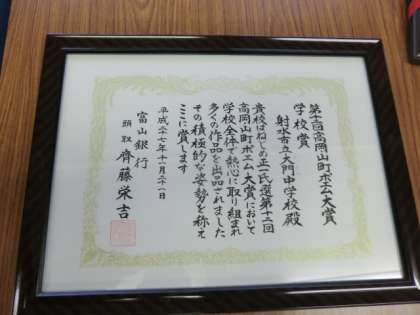 第十二回高岡山町ポエム大賞
学校賞
射水市立大門中学校殿
貴校はねじめ正一氏選第十二回
高岡山町ポエム大賞において
学校全体で熱心に取り組まれ
多くの作品を出品されました
その積極的な姿勢を称えて
ここに賞します
平成二十七年十一月二十一日
富山銀行
頭取 齊藤栄吉